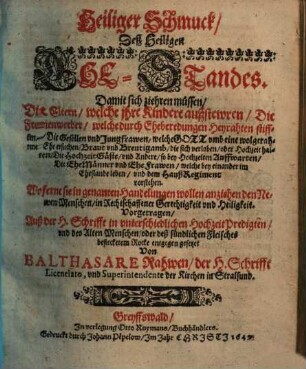 Heiliger Schmuck/
Deß Heiligen
EHE-Standes.
Damit sich ziehren müssen/
Die Eltern/ welche jhre Kindere außstewren/ Die
Freyenwerber/ welche durch Eheberedungen Heyrahten stiff-
ten/ Die Gesellen und Jungfrawen/ welche GOTT umb eine wolgerah-
Ehe ersuchen/ Braut und Breutigamb/ die sich verloben/ oder Hochzeit hal-
Die Hochzeit Gäste/ und Andere/ so bey Hochzeiten Auffwarten/
Die Ehe Männer und Ehe Frawen/ welche bey einander im
Ehestande leben/ und dem Hauß Regiment
vorstehen.
Wo ferne sie in genanten Handelungen wollen anziehen den Ne-
wen Menschen/ in Rechtschaffener Gerechtigkeit und Heiligkeit.
Vorgetragen/
Auß der H. Schrifft in unterschiedlichen Hochzeit Predigten/
und des Alten Menschen/ oder deß sündlichen Fleisches
beflecketem Rocke entgegen gesetzt
Von
BALTHASARE Rahwen/ der H. Schrifft
Licentiato, und Superintendente der Kirchen in Stralsund.
Greyffswald/
In verlegung Otto Reymann/ Buchhändlers.
Gedruckt durch Johann Päpelow/ Im Jahr CHRISTI